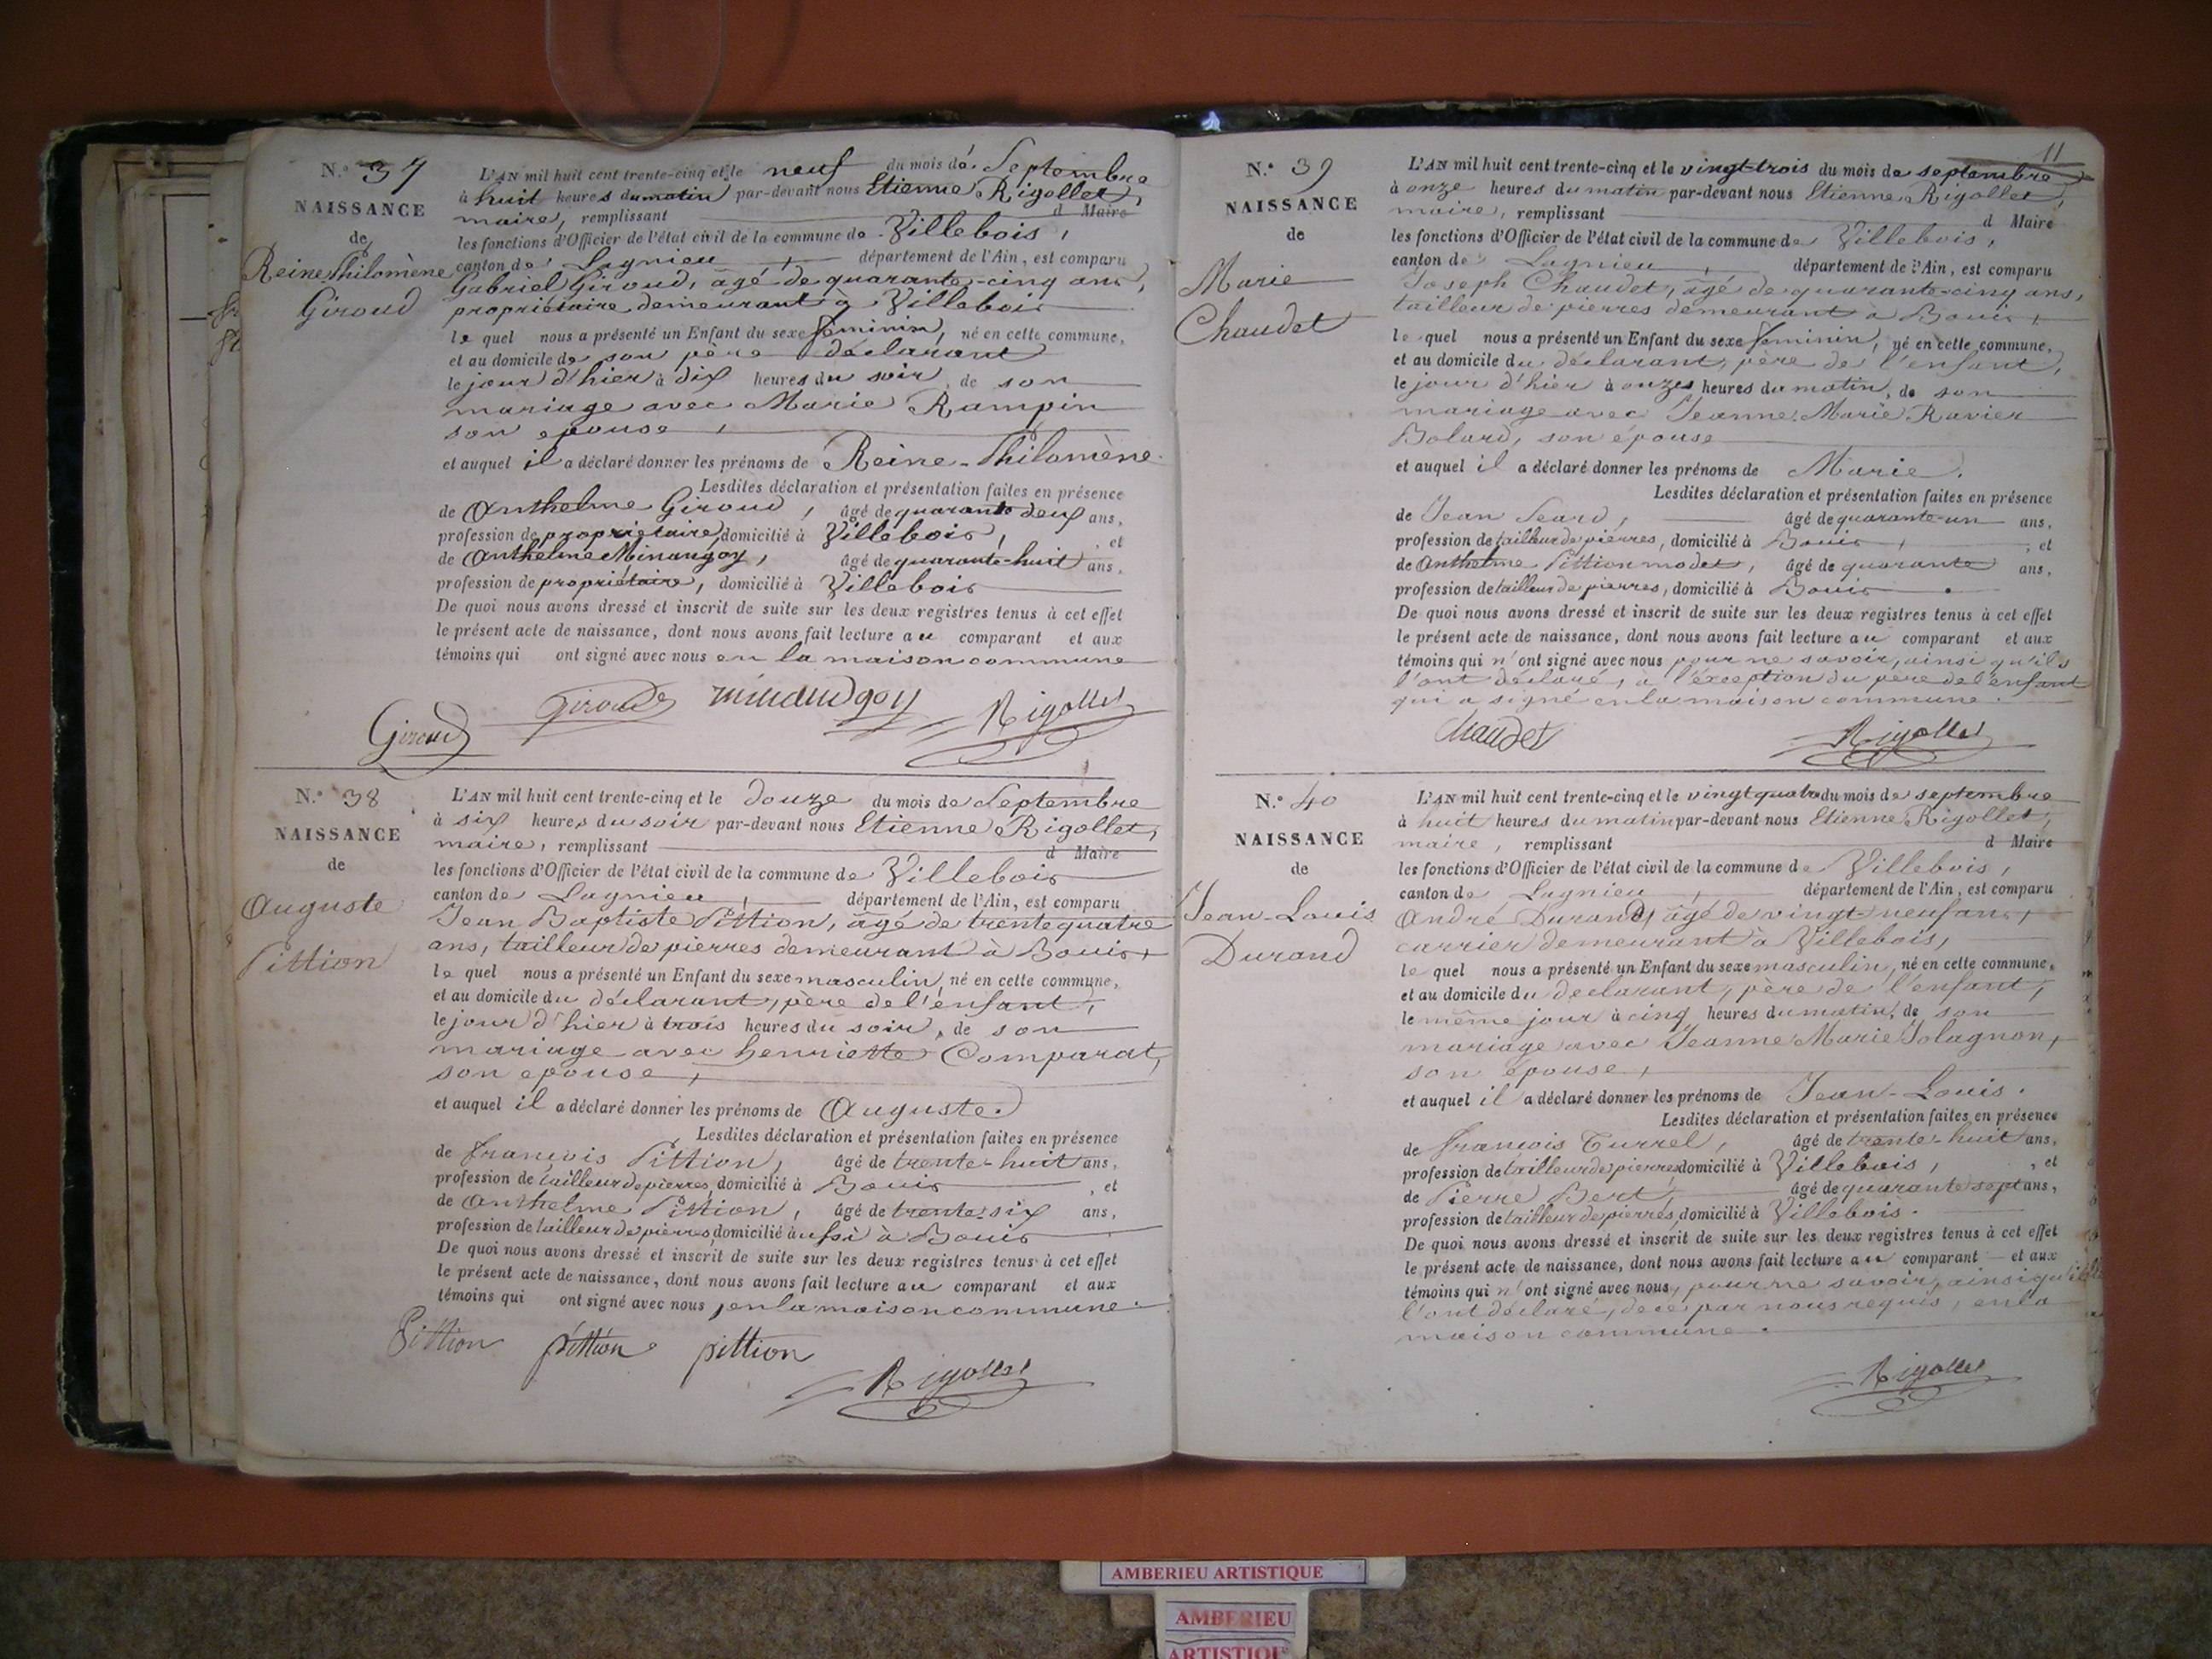 N.° 37
NAISSANCE
de
Reine Philomène
Giroud
L'AN mil huit cent trente-cinq et le neuf du mois de Septembre
à huit heures du matin par-devant nous Etienne Rigollet,
maire, remplissant d Maire
les fonctions d'Officier de l'état civil de la commune de Villebois,
canton de Lagnieu, département de l'Ain, est comparu
Gabriel Giroud, âgé de quarante-cinq ans,
propriétaire demeurant à Villebois
le quel nous a présenté un Enfant du sexe feminin, né en cette commune,
et au domicile de son père déclarant
le jour d'hier à dix heures du soir, de son
mariage avec Marie Rampin
son epouse,
et auquel il a déclaré donner les prénoms de Reine-Philomène.
Lesdites déclaration et présentation faites en présence
de Anthelme Giroud, âgé de quarante deux ans,
profession de propriétaire, domicilié à Villebois, et
de Anthelme Minangoy, âgé de quarante-huit ans,
profession de propriétaire, domicilié à Villebois
De quoi nous avons dressé et inscrit de suite sur les deux registres tenus à cet effet
le présent acte de naissance, dont nous avons fait lecture au comparant et aux
témoins qui ont signé avec nous en la maison commune
Giroud Giroud minandgoy Rigollet
N.° 38
NAISSANCE
de
Auguste
Pittion
L'AN mil huit cent trente-cinq et le douze du mois de Septembre
à six heures du soir par-devant nous Etienne Rigollet,
maire, remplissant d Maire
les fonctions d'Officier de l'état civil de la commune de Villebois
canton de Lagnieu, département de l'Ain, est comparu
Jean Baptiste Pittion, âgé de trente quatre
ans, tailleur de pierres demeurant à Bouis,
le quel nous a présenté un Enfant du sexe masculin, né en cette commune,
et au domicile du déclarant, père de l'enfant,
le jour d'hier à trois heures du soir, de son
mariage avec henriette Comparat,
son epouse,
et auquel il a déclaré donner les prénoms de Auguste.
Lesdites déclaration et présentation faites en présence
de François Pittion, âgé de trente-huit ans,
profession de tailleur de pierres, domicilié à Bouis, et
de Anthelme Pittion, âgé de trente-six ans,
profession de tailleur de pierres domicilié aussi à Bouis
De quoi nous avons dressé et inscrit de suite sur les deux registres tenus à cet effet
le présent acte de naissance, dont nous avons fait lecture au comparant et aux
témoins qui ont signé avec nous, en la maison commune.
Pittion pittion pittion
Rigollet
11
N.° 39
NAISSANCE
de
Marie
Chaudet
L'AN mil huit cent trente-cinq et le vingt-trois du mois de septembre
à onze heures du matin par-devant nous Etienne Rigollet,
maire, remplissant d Maire
les fonctions d'Officier de l'état civil de la commune de Villebois,
canton de Lagnieu, département de l'Ain, est comparu
Joseph Chaudet, âgé de quarante-cinq ans,
tailleur de pierres demeurant à Bouis,
le quel nous a présenté un Enfant du sexe feminin, né en cette commune,
et au domicile du déclarant, père de l'enfant,
le jour d'hier à onzes heures du matin, de son
mariage avec Jeanne Marie Ravier
Bolard, son épouse
et auquel il a déclaré donner les prénoms de Marie.
Lesdites déclaration et présentation faites en présence
de Jean Seard, âgé de quarante-un ans,
profession de tailleur de pierres, domicilié à Bouis, et
de Anthelme Pittion modet, âgé de quarante ans,
profession de tailleur de pierres, domicilié à Bouis.
De quoi nous avons dressé et inscrit de suite sur les deux registres tenus à cet effet
le présent acte de naissance, dont nous avons fait lecture au comparant et aux
témoins qui n'ont signé avec nous pour ne savoir, ainsi qu'ils
l'ont déclaré, a l'éxception du père de l'enfant
qui a signé en la maison commune.
Chaudet Rigollet
N.° 40
NAISSANCE
de
Jean-Louis
Durand
L'AN mil huit cent trente-cinq et le vingt quatre du mois de septembre
à huit heures du matin par-devant nous Etienne Rigollet,
maire, remplissant d Maire
les fonctions d'Officier de l'état civil de la commune de Villebois,
canton de Lagnieu, département de l'Ain, est comparu
André Durand, âgé de vingt-neuf ans,
carrier demeurant à Villebois,
le quel nous a présenté un Enfant du sexe masculin, né en cette commune,
et au domicile du declarant, père de l'enfant,
le même jour à cinq heures du matin, de son
mariage avec Jeanne Marie Solagnon,
son épouse,
et auquel il a déclaré donner les prénoms de Jean-Louis.
Lesdites déclaration et présentation faites en présence
de François Turrel, âgé de trente-huit ans,
profession de tailleur de pierres domicilié à Villebois, et
de Pierre Bert, âgé de quarante sept ans,
profession de tailleur de pierres, domicilié à Villebois.
De quoi nous avons dressé et inscrit de suite sur les deux registres tenus à cet effet
le présent acte de naissance, dont nous avons fait lecture au comparant et aux
témoins qui n'ont signé avec nous, pour ne savoir, ainsi qu'ils
l'ont déclaré, de ce par nous requis, en la
maison commune.
Rigollet
AMBERIEU ARTISTIQUE
AMBERIEU
ARTISTIQUE